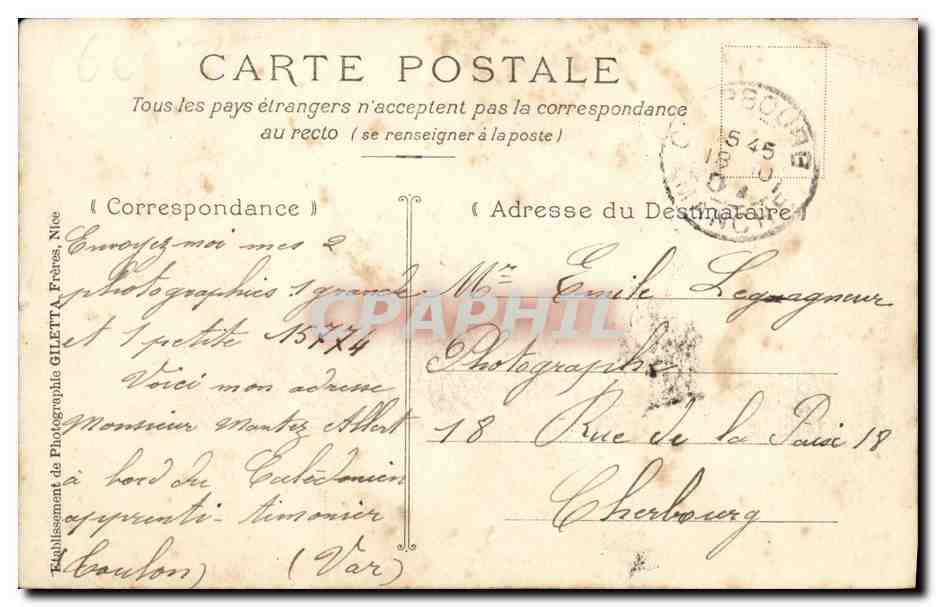 CARTE POSTALE
Tous les pays étrangers n'acceptent pas la correspondance
au recto (se renseigner à la poste)
CHERBOURG
5 45
18
MANCHE
« Correspondance »
« Adresse du Destinataire »
Envoyez-moi mes 2
photographies 1 grande
et 1 petite 15774
Voici mon adresse
Monsieur Mantez Albert
à bord du Calédonien
apprenti-timonier
(Toulon) (Var)
Mr Emile Legagneur
Photographe
18 Rue de la Paix 18
Cherbourg
Etablissement de Photographie GILETTA Frères, Nice
CPAPHIL